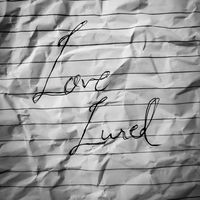 Love
Lured